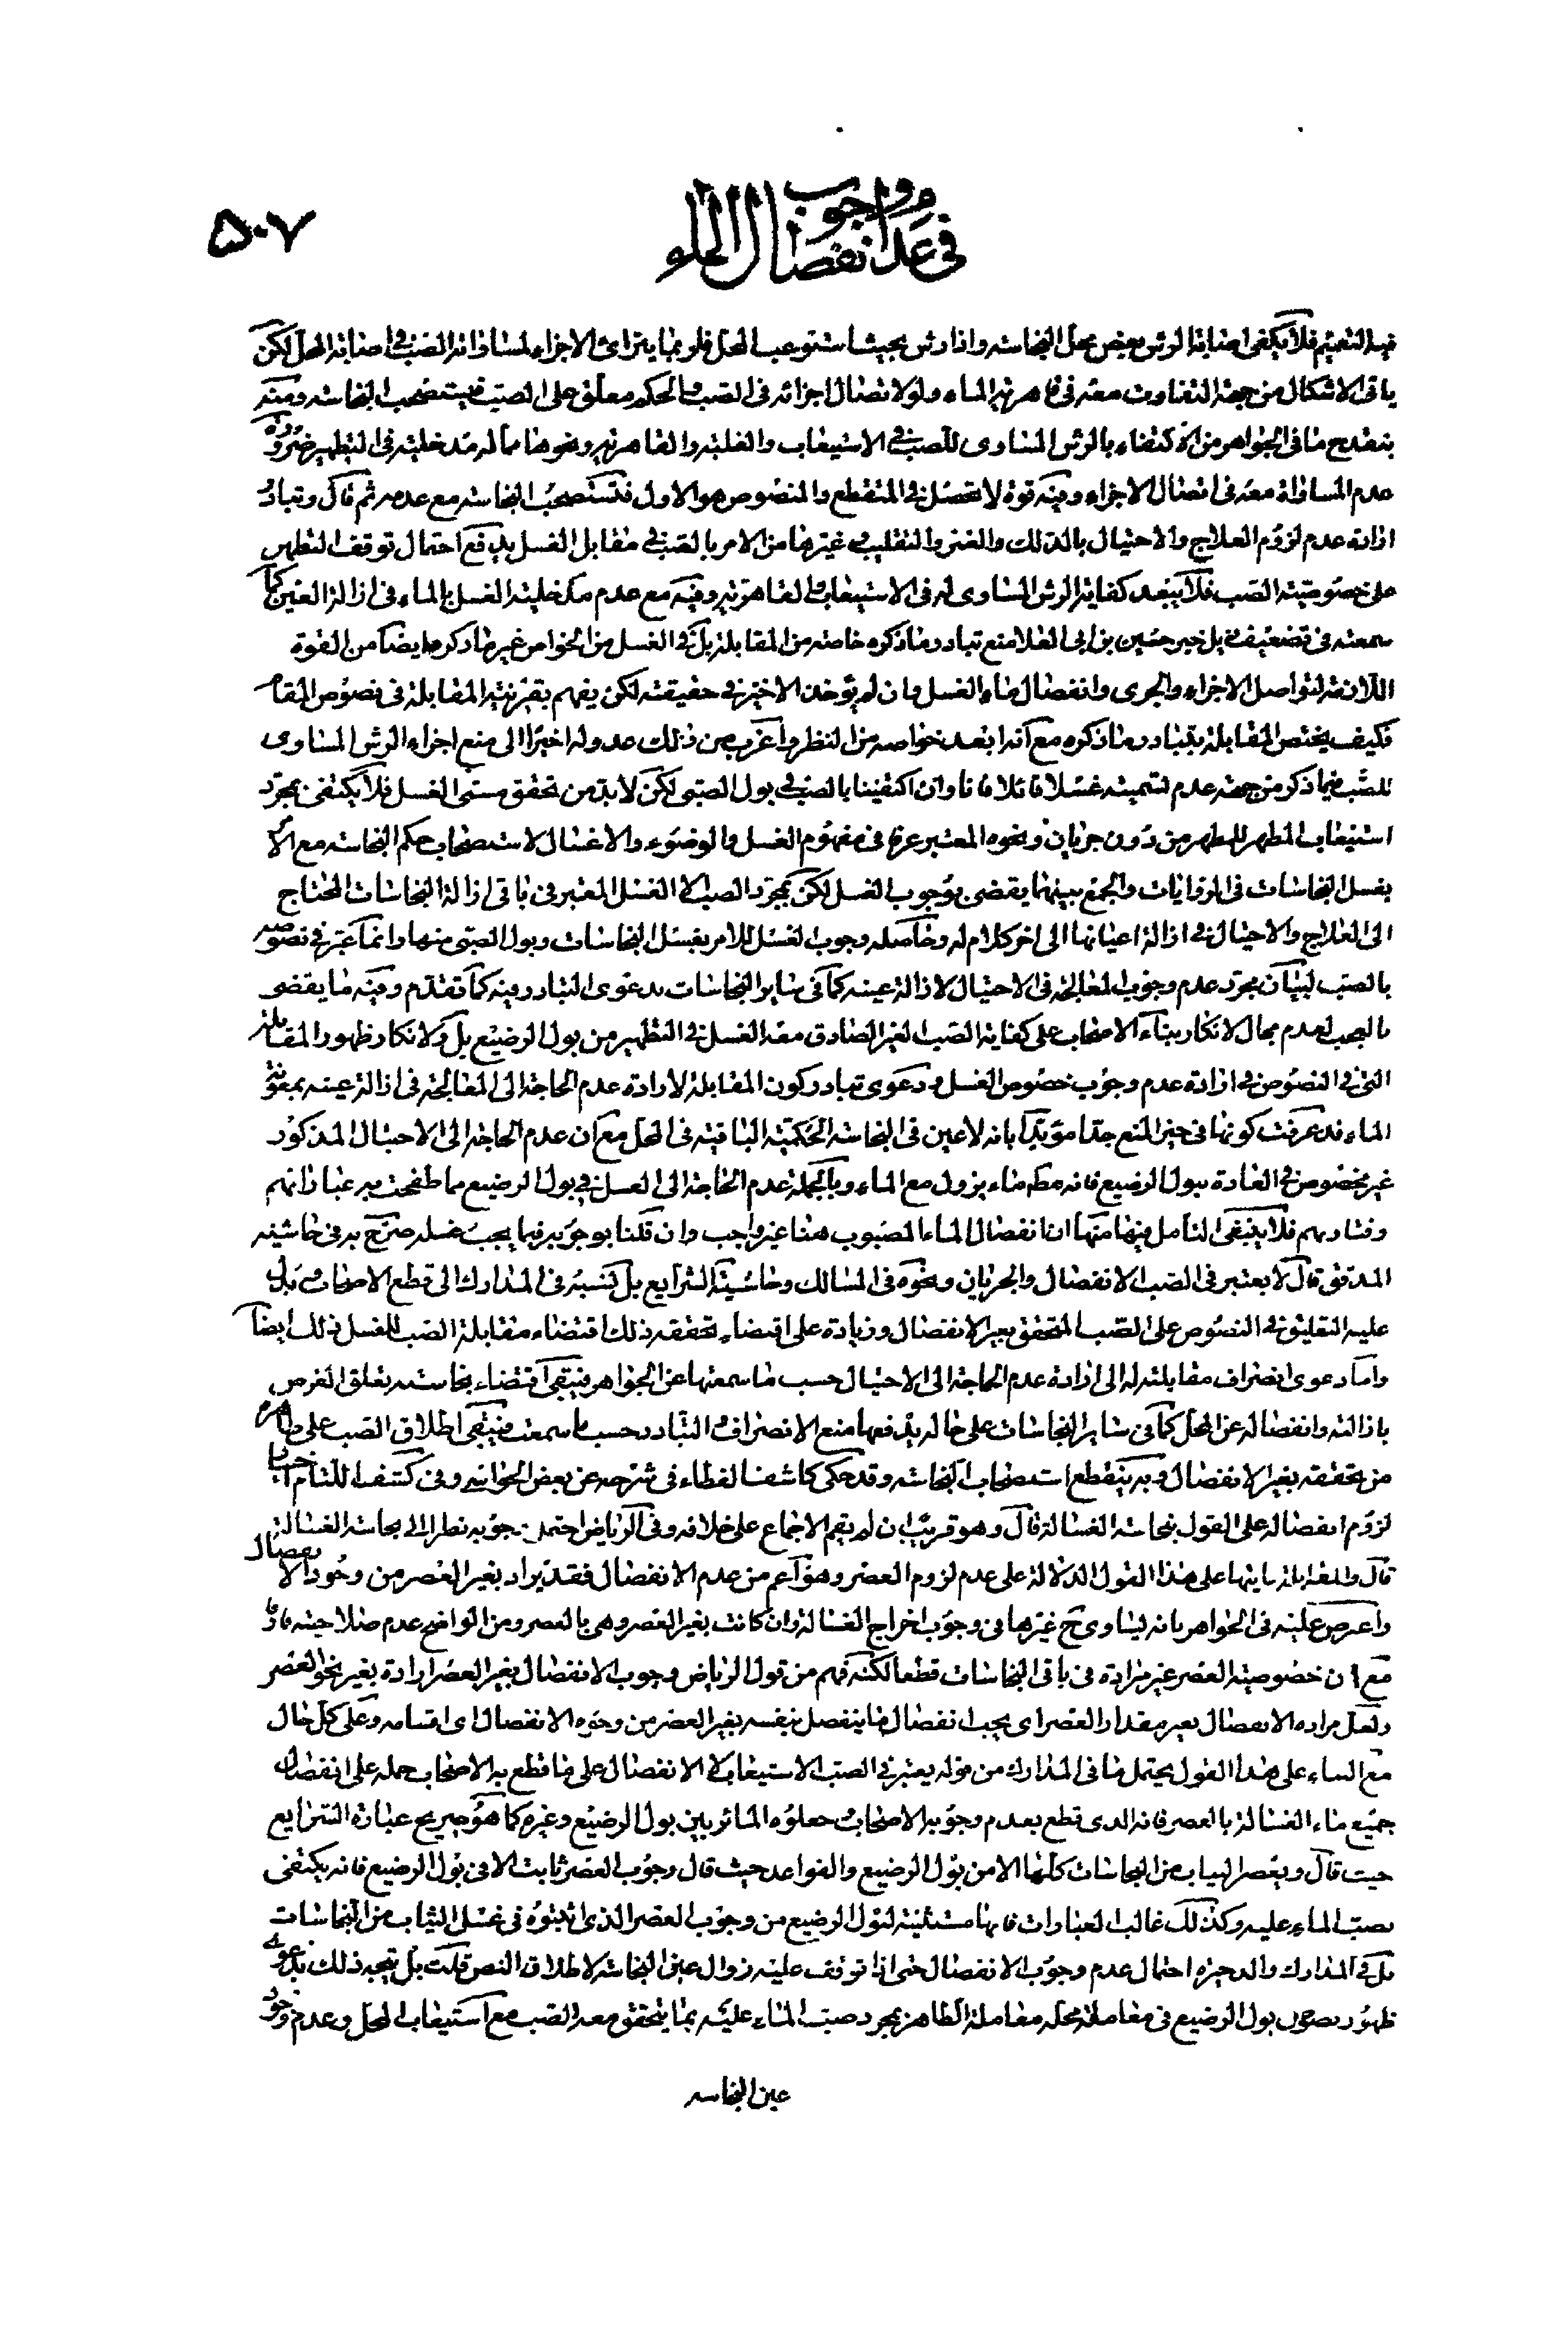 في عدم وجوب انفصال الماء
۵۰۷
فيه التعميم فلا يكفى اصابة الرش بعض محل النجاسة واذا رش بحيث استوعب المحل فلو بما يترائى الاجزاء لمساواته الصب في اصابة المحل لكن
ياتى الاشكال من جهة التفاوت معه في قاهرية الماء ولو لاتصال اجزائه في الصب والحكم معلق على الصب فيستصحب النجاسة ومنه
ينقدح ما في الجواهر من الاكتفاء بالرش المساوى للصب في الاستيعاب والغلبة والقاهرية ونحوها مما له مدخلية في التطهير ضرورة
عدم المساواة معه في اتصال الاجزاء وفيه قوة لا تحصل في المتقطع والمنصوص هو الاول فتستصحب النجاسة مع عدمه ثم قال وتبادر
ارادة عدم لزوم العلاج والاحتيال بالدلك والغمز والتقليب وغيرها من الامر بالصب في مقابل الغسل يدفع احتمال توقف التطهير
على خصوصية الصب فلا يبعد كفاية الرش المساوى له في الاستيعاب والقاهرية وفيه مع عدم مدخلية الغسل بالماء في ازالة العين كما
سمعته في تضعيف بل خبر حسين بن ابى العلا منع تبادر ما ذكره خاصة من المقابلة بل في الغسل من الخواص غير ما ذكره ايضا من القوة
اللازمة لتواصل الاجزاء والجرى وانفصال ماء الغسل وان لم يؤخذ الاخير في حقيقته لكن يفهم بقرينة المقابلة في نصوص المقام
فكيف يختص المقابلة بتبادر ما ذكره مع انه ابعد خواصه من النظر واغرب من ذلك عدوله اخيرا الى منع اجزاء الرش المساوى
للصب فيما ذكر من جهة عدم تسميته غسلا قائلا فانا وان اكتفينا بالصب في بول الصبى لكن لا بد من تحقق مسمى الغسل فلا يكتفى بمجرد
استيعاب المطهر للمطهر من دون جريان ونحوه المعتبر عرفا في مفهوم الغسل والوضوء والاغتسال لاستصحاب حكم النجاسة مع الامر
بغسل النجاسات في الروايات والجمع بينهما يقضى بوجوب الغسل لكن بمجرد الصب لا الغسل المعتبر في باقى ازالة النجاسات المحتاج
الى العلاج والاحتيال في ازالة اعيانها الى اخر كلام له وحاصله وجوب الغسل للامر بغسل النجاسات وبول الصبى منها وانما عبر في نصوصه
بالصب لبيان مجرد عدم وجوب المعالجة في الاحتيال لازالة عينه كما في ساير النجاسات بدعوى التبادر فيه كما تقدم وفيه ما يقضى
بالعجب لعدم مجال الانكار بناء الاصحاب على كفاية الصب الغير الصادق معه الغسل في التطهير من بول الرضيع بل ولا انكار ظهور المقابلة
التى في النصوص في ارادة عدم وجوب خصوص الغسل ودعوى تبادر كون المقابلة لارادة عدم الحاجة الى المعالجة في ازالة عينه بمعونة
الماء قد عرفت كونها في حيز المنع جدا مؤيدا بانه لا عين في النجاسة الحكمية الباقية في المحل مع ان عدم الحاجة الى الاحتيال المذكور
غير مخصوص في العادة ببول الرضيع فانه مطلقا ماء يزول مع الماء وبالجملة عدم الحاجة الى الغسل في بول الرضيع مما طفحت به عباراتهم
وفتاويهم فلا ينبغى التامل فيها منها ان انفصال الماء المصبوب هنا غير واجب وان قلنا بوجوبه فيما يجب غسله صرح به في حاشية
المدقق قال لا يعتبر في الصب الانفصال والجريان ونحوه في المسالك وحاشية الشرايع بل نسبه في المدارك الى قطع الاصحاب ويدل
عليه التعليق في النصوص على الصب المتحقق بغير الانفصال وزيادة على اقتضاء تحققه ذلك اقتضاء مقابلة الصب للغسل ذلك ايضا
واما دعوى انصراف مقابلته له الى ارادة عدم الحاجة الى الاحتيال حسب ما سمعتها عن الجواهر فيبقى اقتضاء نجاسته بتعلق الغرض
بازالته وانفصاله عن المحل كما في ساير النجاسات على حاله يدفعها منع الانصراف والتبادر حسب ما سمعت فيبقى اطلاق الصب على ظاهره
من تحققه بغير الانفصال وبه ينقطع استصحاب النجاسة وقد حكى كاشف الغطاء في شرحه عن بعض الحواشى وفي كشف اللثام
لزوم انفصاله على القول بنجاسة الغسالة قال وهو قريب ان لم يقم الاجماع على خلافه وفي الرياض احتمل وجوبه نظرا الى نجاسة الغسالة
قال والمقابلة غايتها على هذا القول الدلالة على عدم لزوم العصر وهو اعم من عدم الانفصال فقد يراد بغير العصر من وجوه الانفصال
واعترض عليه في الجواهر بانه يساوى ح غيرها في وجوب اخراج الغسالة وان كانت بغير العصر وهى بالعصر ومن الواضح عدم صلاحيته فارقا
مع ان خصوصية العصر غير مرادة في باقى النجاسات قطعا لكنه فهم من قول الرياض وجوب الانفصال بغير العصر ارادة بغير نحو العصر
ولعل مراده الانفصال بغير مقدار العصر اى يجب انفصال ما ينفصل بنفسه بغير العصر من وجوه الانفصال اى اقسامه وعلى كل حال
مع البناء على هذا القول يحتمل ما في المدارك من قوله يعتبر في الصب الاستيعاب لا الانفصال على ما قطع به الاصحاب حمله على انفصال
جميع ماء الغسالة بالعصر فانه الذى قطع بعدم وجوبه الاصحاب وجعلوه المائز بين بول الرضيع وغيره كما هو صريح عبارة الشرايع
حيث قال ويعصر الثياب من النجاسات كلها الا من بول الرضيع والقواعد حيث قال وجوب العصر ثابت الا في بول الرضيع فانه يكتفى
بصب الماء عليه وكذلك غالب العبارات فانها مستثنية لبول الرضيع من وجوب العصر الذى اثبتوه في غسل الثياب من النجاسات
بل في المدارك والذخيرة احتمال عدم وجوب الانفصال حتى اذا توقف عليه زوال عين النجاسة لاطلاق النص قلت بل يتجه ذلك بدعوى
ظهور نصوص بول الرضيع في معاملة محله معاملة الطاهر بمجرد صب الماء عليه بما يتحقق معه الصب مع استيعاب المحل وعدم وجود
عين النجاسة